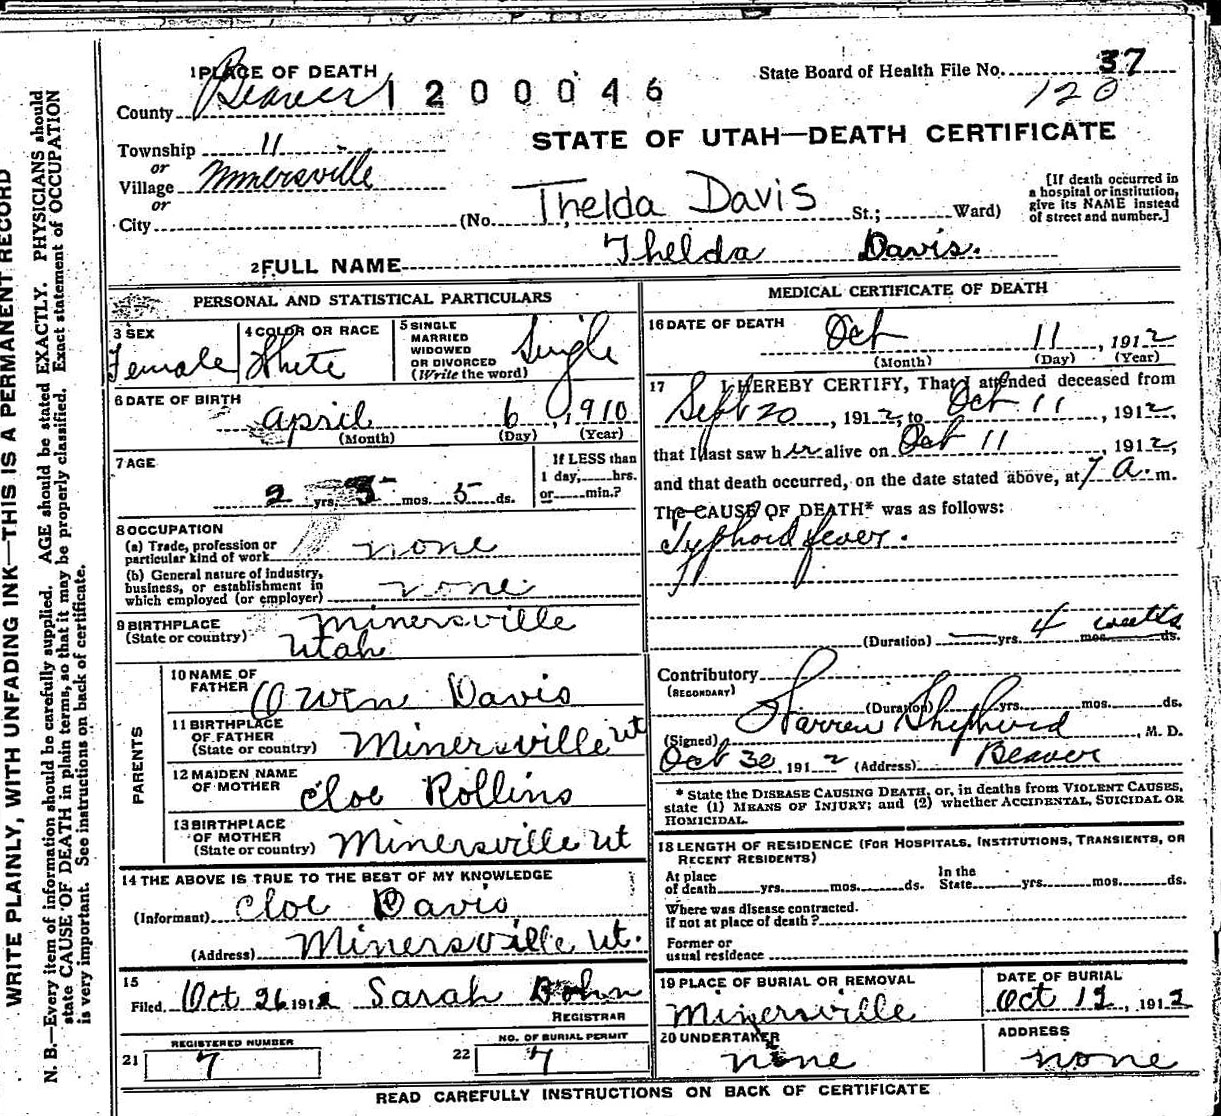 1 PLACE OF DEATH
County Beaver 1200046
State Board of Health File No. 37
120
STATE OF UTAH—DEATH CERTIFICATE
Township 11
or
Village Minersville
or
City (No. Thelda Davis St.; Ward)
[If death occurred in
a hospital or institution,
give its NAME instead
of street and number.]
2 FULL NAME Thelda Davis.
PERSONAL AND STATISTICAL PARTICULARS
3 SEX
Female
4 COLOR OR RACE
White
5 SINGLE
MARRIED
WIDOWED
OR DIVORCED
(Write the word)
Single
6 DATE OF BIRTH
April 6, 1910
(Month) (Day) (Year)
7 AGE
2 yrs. 5 mos. 5 ds.
If LESS than
1 day, hrs.
or min.?
8 OCCUPATION
(a) Trade, profession or
particular kind of work none
(b) General nature of industry,
business, or establishment in
which employed (or employer) none
9 BIRTHPLACE
(State or country)
Minersville
Utah
PARENTS
10 NAME OF
FATHER Owen Davis
11 BIRTHPLACE
OF FATHER
(State or country) Minersville Ut
12 MAIDEN NAME
OF MOTHER Cloe Rollins
13 BIRTHPLACE
OF MOTHER
(State or country) Minersville Ut
14 THE ABOVE IS TRUE TO THE BEST OF MY KNOWLEDGE
(Informant) Cloe Davis
(Address) Minersville Ut.
15
Filed Oct 26 1912 Sarah Dohn
REGISTRAR
REGISTERED NUMBER
21 7
NO. OF BURIAL PERMIT
22 7
MEDICAL CERTIFICATE OF DEATH
16 DATE OF DEATH
Oct 11, 1912
(Month) (Day) (Year)
17 I HEREBY CERTIFY, That I attended deceased from
Sept 20, 1912, to Oct 11, 1912,
that I last saw her alive on Oct 11, 1912,
and that death occurred, on the date stated above, at 7 a. m.
The CAUSE OF DEATH* was as follows:
Typhoid fever.
(Duration) yrs. 4 mos. weeks ds.
Contributory
(SECONDARY)
(Duration) yrs. mos. ds.
(Signed) Warren Shepherd, M. D.
Oct 30, 1912 (Address) Beaver
* State the DISEASE CAUSING DEATH, or, in deaths from VIOLENT CAUSES,
state (1) MEANS OF INJURY; and (2) whether ACCIDENTAL, SUICIDAL OR
HOMICIDAL.
18 LENGTH OF RESIDENCE (FOR HOSPITALS, INSTITUTIONS, TRANSIENTS, OR
RECENT RESIDENTS)
At place
of death yrs. mos. ds.
In the
State yrs. mos. ds.
Where was disease contracted.
if not at place of death?
Former or
usual residence
19 PLACE OF BURIAL OR REMOVAL
Minersville
DATE OF BURIAL
Oct 12, 1912
20 UNDERTAKER
none
ADDRESS
none
READ CAREFULLY INSTRUCTIONS ON BACK OF CERTIFICATE
WRITE PLAINLY, WITH UNFADING INK—THIS IS A PERMANENT RECORD
N. B.—Every item of information should be carefully supplied. AGE should be stated EXACTLY. PHYSICIANS should
state CAUSE OF DEATH in plain terms, so that it may be properly classified. Exact statement of OCCUPATION
is very important. See instructions on back of certificate.